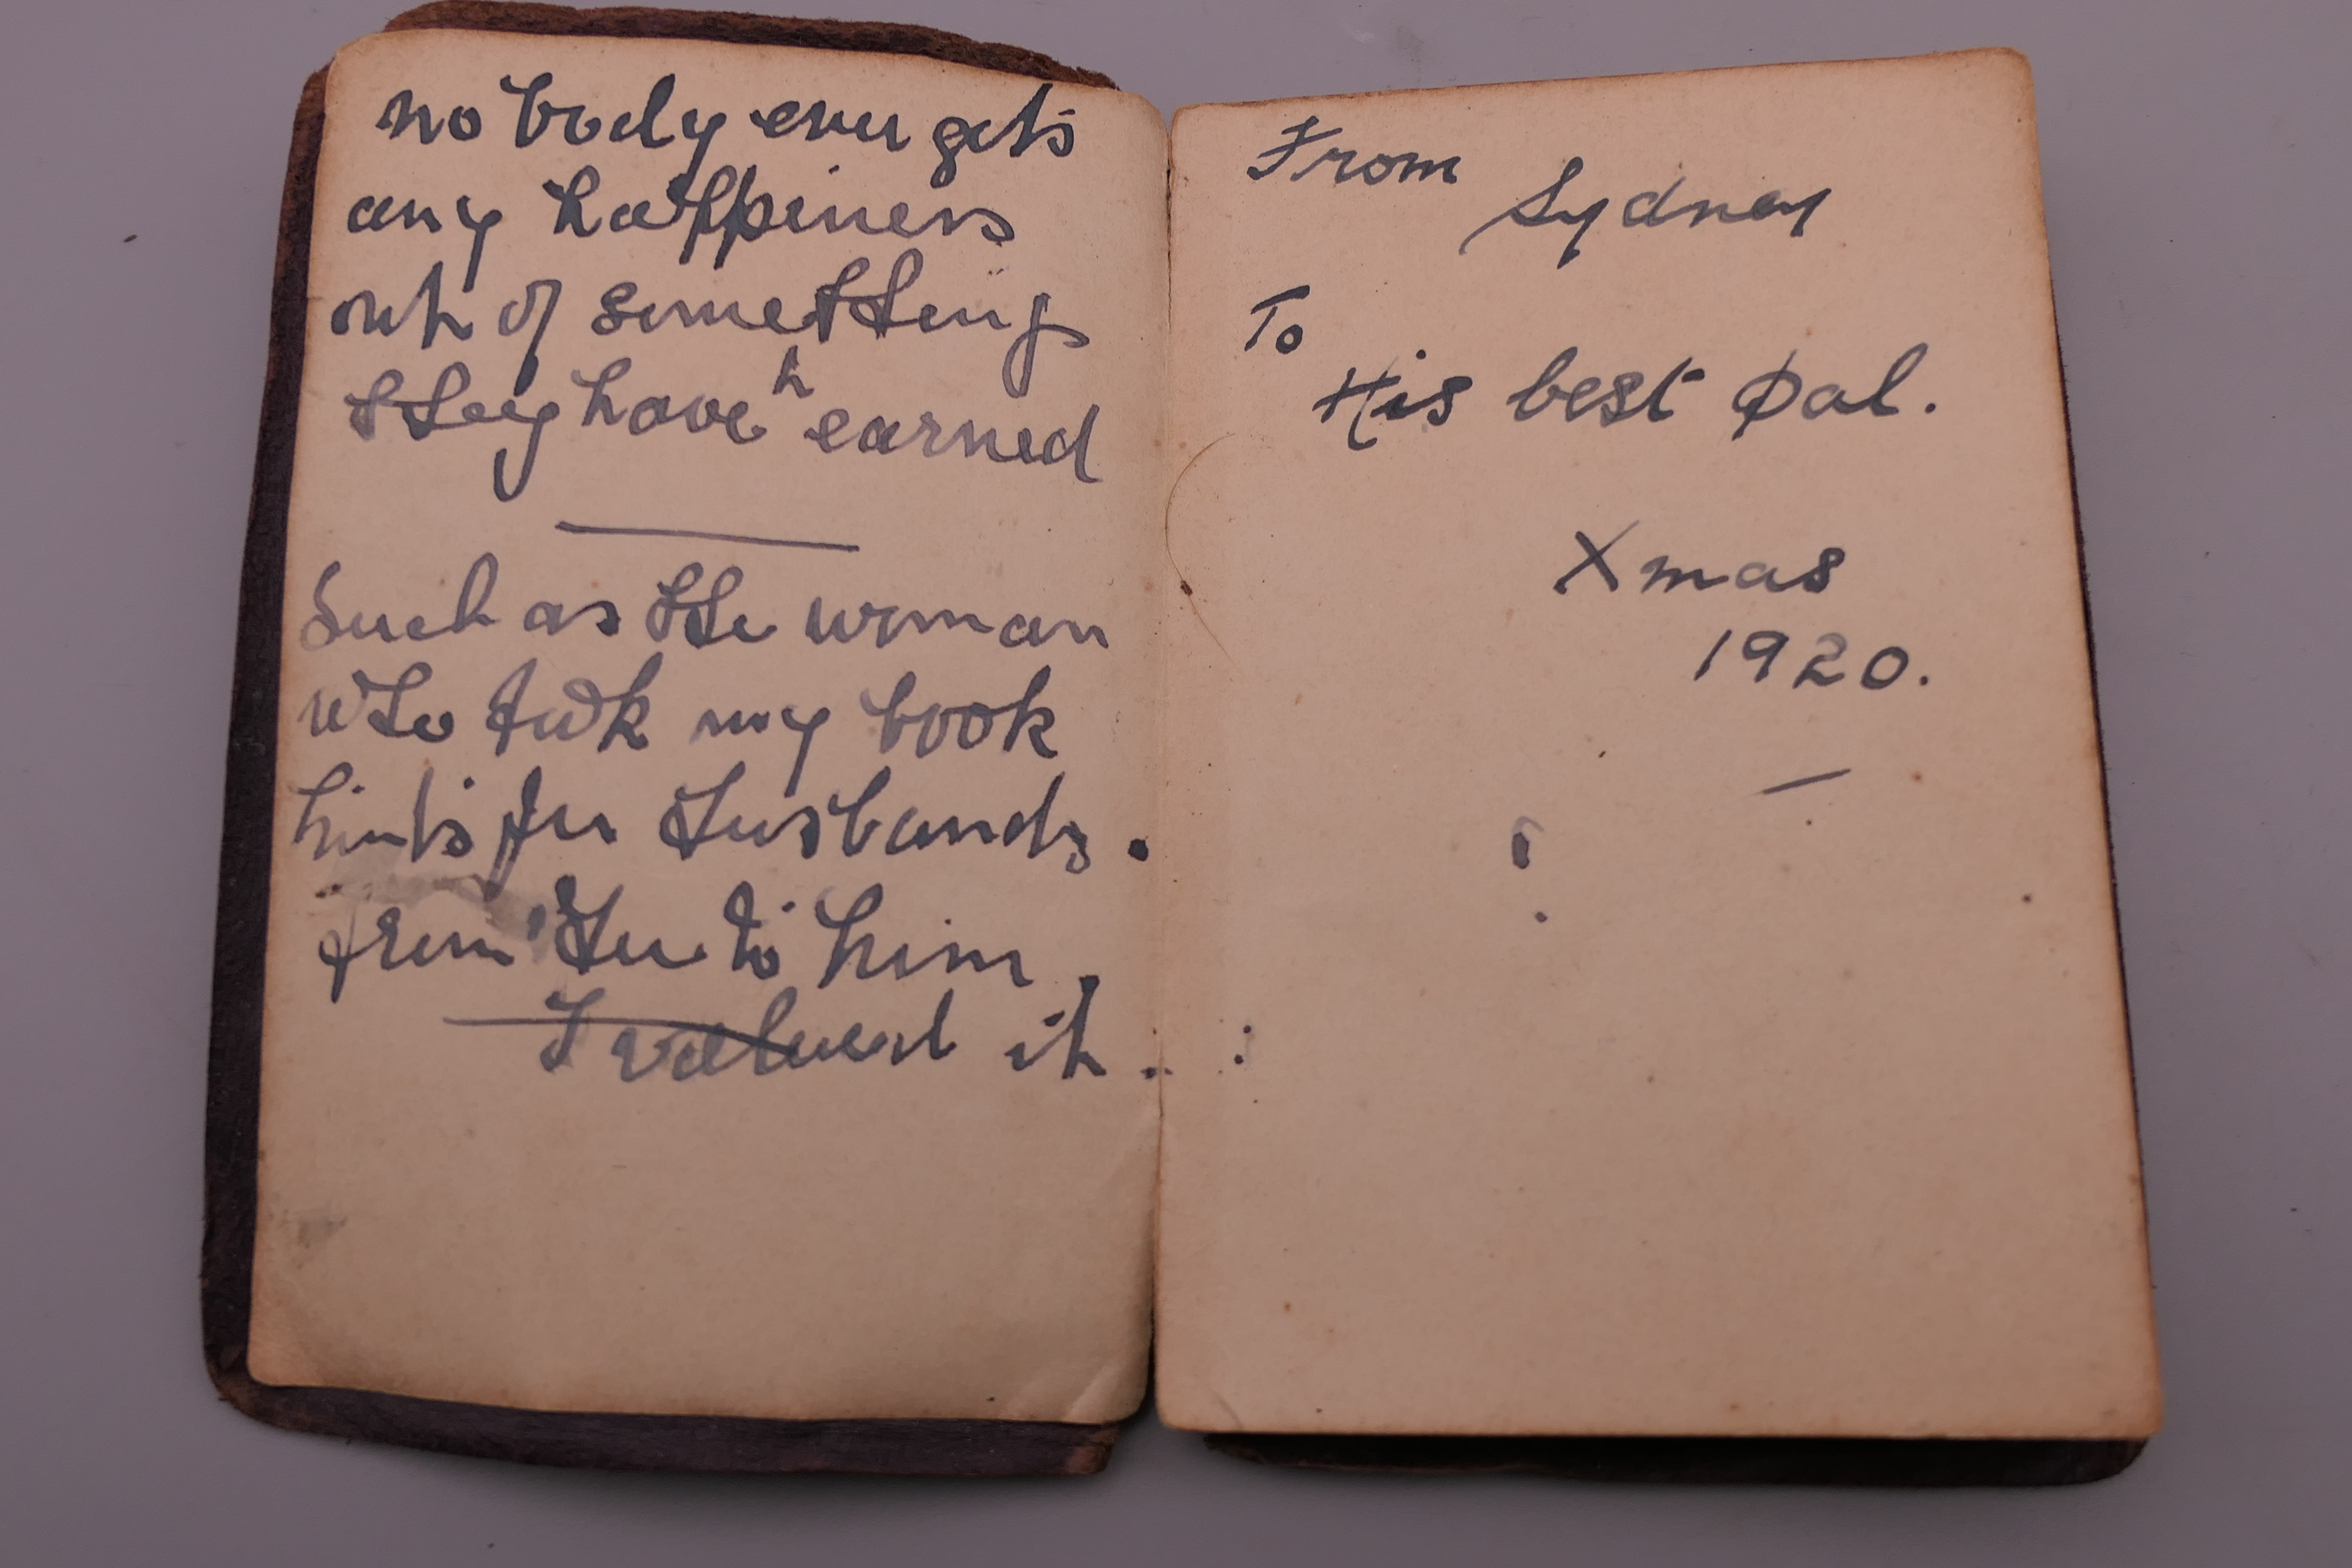 no body ever gets
any happiness
out of something
they have n earned
Such as the woman
who took my book
hints for Husbands.
from Her to him.
I valued it.
From
Sydney
To
His best Pal.
Xmas
1920.